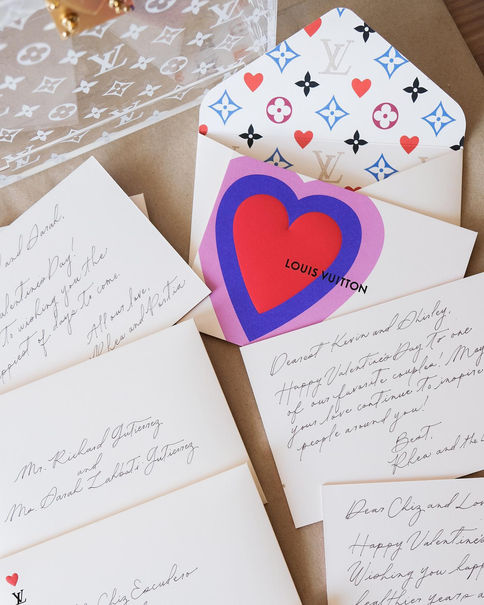 LOUIS VUITTON
and Sarah,
Valentine's Day!
To wishing you the
happiest of days to come.
All our love,
Rhea and
Dearest Kevin and Shirley,
Happy Valentine's Day to one
of our favorite couples! May
your love continue to inspire
people around you!
Best,
Rhea and the
Mr. Richard Gutierrez
and
Ms. Sarah Lahbati Gutierrez
Dear Chiz and
Happy Valentine's
Wishing you
healthier years
LV
Chiz Escudero